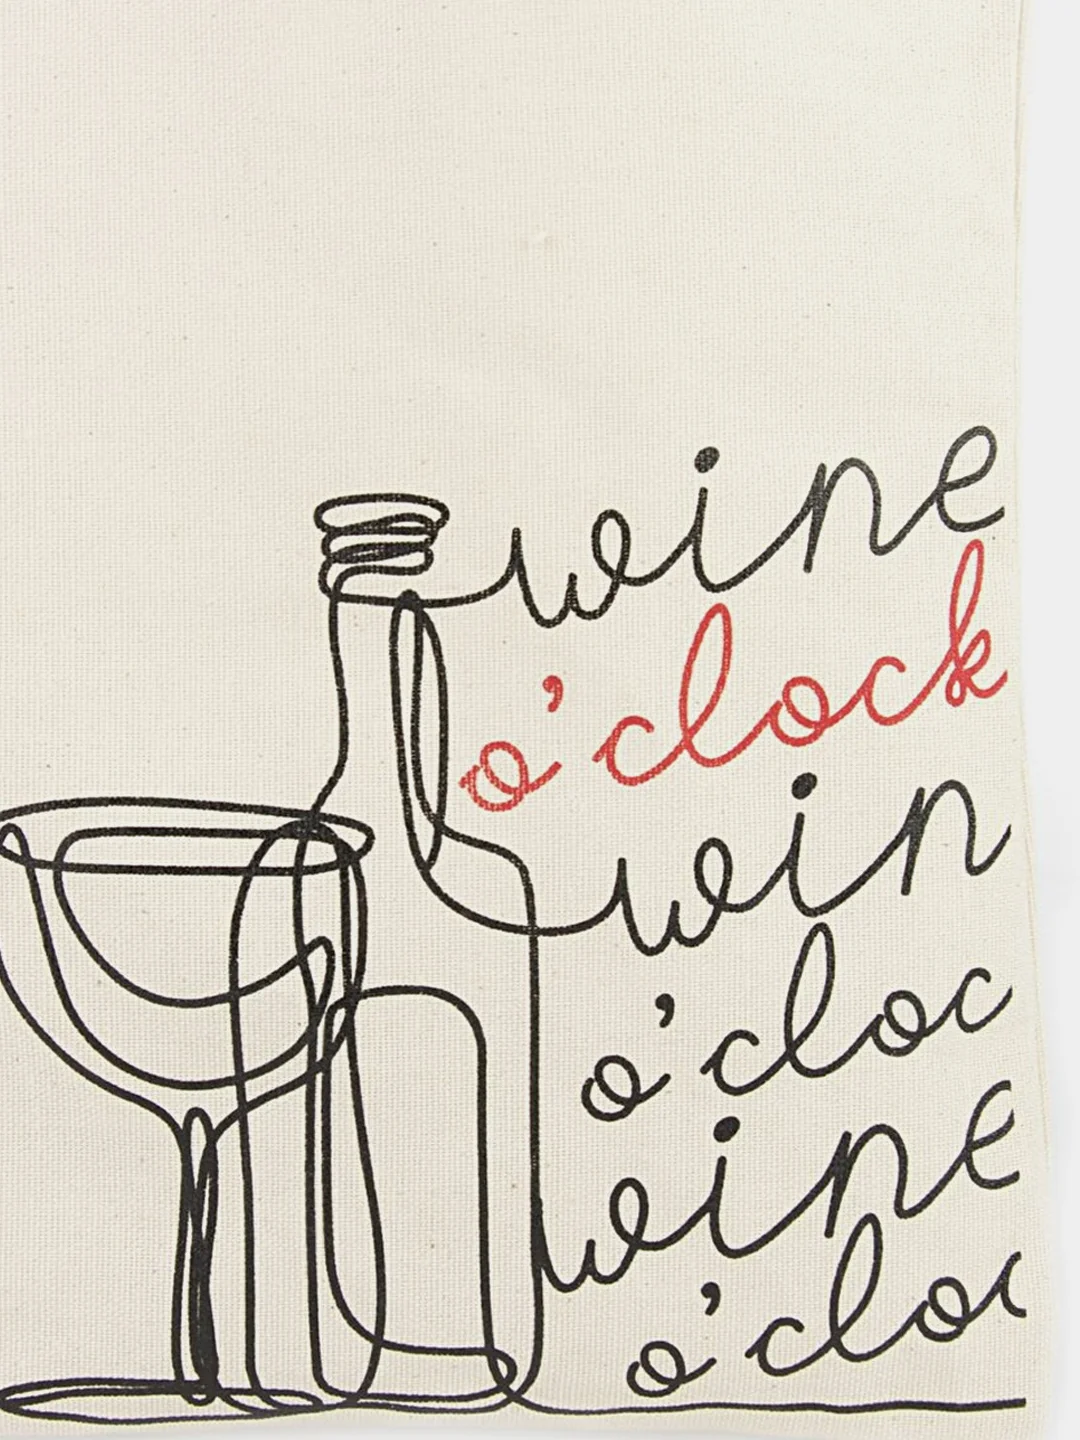 wine
o'clock
win
o'cloc
wine
o'cloc